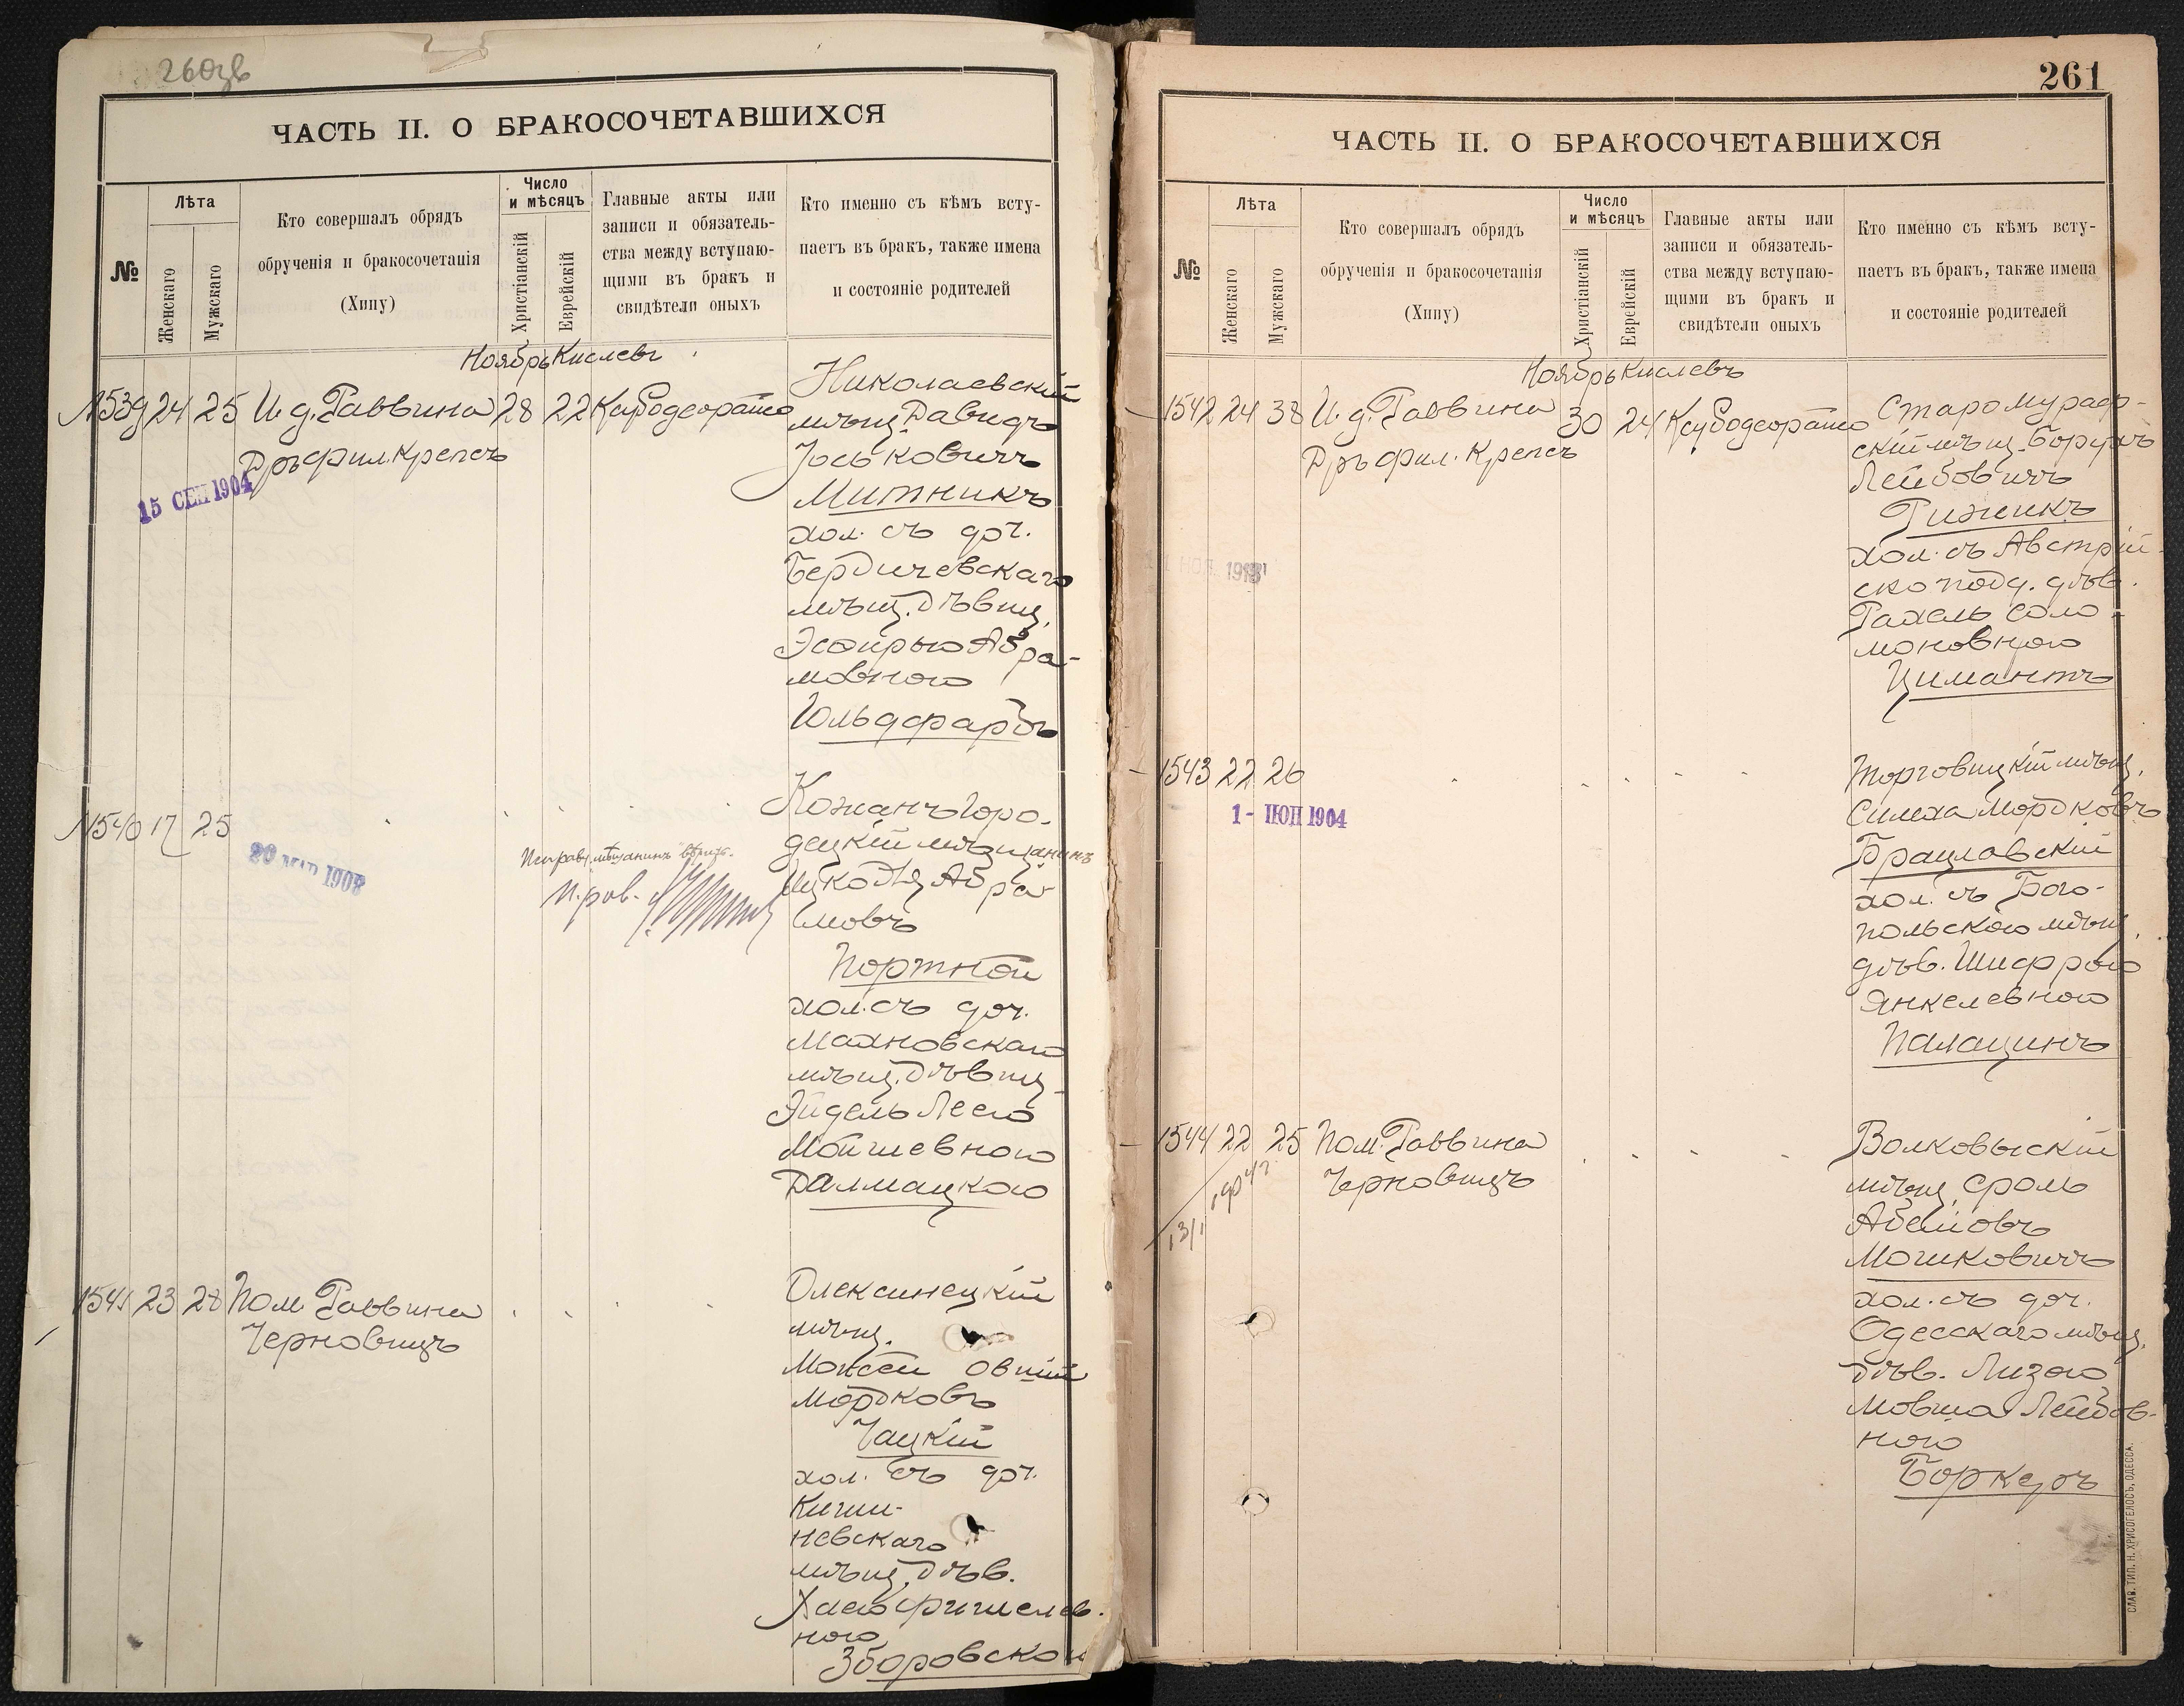 260зв
ЧАСТЬ II. О БРАКОСОЧЕТАВШИХСЯ
№
Лѣта
Женскаго
Мужскаго
Кто совершалъ обрядъ
обрученія и бракосочетанія
(Хипу)
Число
и мѣсяцъ
Христіанскій
Еврейскій
Главные акты или
записи и обязатель-
ства между вступаю-
щими въ бракъ и
свидѣтели оныхъ
Кто именно съ кѣмъ всту-
паетъ въ бракъ, также имена
и состояніе родителей
Ноябрь Кислевъ
1539 24 25 И. д. Раввина 28 22
Дръ фил. Крепсъ
15 СЕН 1904
Николаевскій
мѣщ. Давидъ
Іоськовичъ
Митникъ
хол. съ доч.
Бердичевскаго
мѣщ. дѣвиц.
Эсѳирью Абра-
мовною
Гольдфарбъ
1540 17 25
20 МАР 1908
Исправ. „мѣщанинъ"
Кожанъ Горо-
децкій мѣщанинъ
Ицко Абра-
мовъ
Портной
хол. съ доч.
Махновскаго
мѣщ. дѣвиц.
Эйдель Леею
Мойшевною
Далмацкою
1541 23 28 Пом. Раввина
Черновицъ
Олексинецкій
мѣщ.
Мойсей Овшій
Мордковъ
Чацкій
хол. съ доч.
Киши-
невскаго
мѣщ. дѣв.
Хаею Фишелев-
ною
Зборовской
261
ЧАСТЬ II. О БРАКОСОЧЕТАВШИХСЯ
№
Лѣта
Женскаго
Мужскаго
Кто совершалъ обрядъ
обрученія и бракосочетанія
(Хипу)
Число
и мѣсяцъ
Христіанскій
Еврейскій
Главные акты или
записи и обязатель-
ства между вступаю-
щими въ бракъ и
свидѣтели оныхъ
Кто именно съ кѣмъ всту-
паетъ въ бракъ, также имена
и состояніе родителей
Ноябрь Кислевъ
1542 24 38 И. д. Раввина 30 24
Дръ фил. Крепсъ
Старомураф-
скій мѣщ. Борухъ
Лейбовичъ
Рижикъ
хол. съ Австрій-
ско подд. дѣв.
Рахель Соло-
моновною
Цимантъ
1543 22 26
1- ІЮП 1904
Торговицкій мѣщ.
Симха Мордковъ
Брацлавскій
хол. съ Бого-
польскою мѣщ.
дѣв. Шифрою
Янкелевною
Палацинъ
1544 22 25 Пом. Раввина
Черновицъ
Волковыскій
мѣщ. Сроль
Абелiовъ
Мошковичъ
хол. съ доч.
Одесскаго мѣщ.
дѣв. Лизою
Мовша Лейбов-
ною
Боркеръ
СЛАВ. ТИП. Н. ХРИСОГЕЛОСЪ, ОДЕССА.